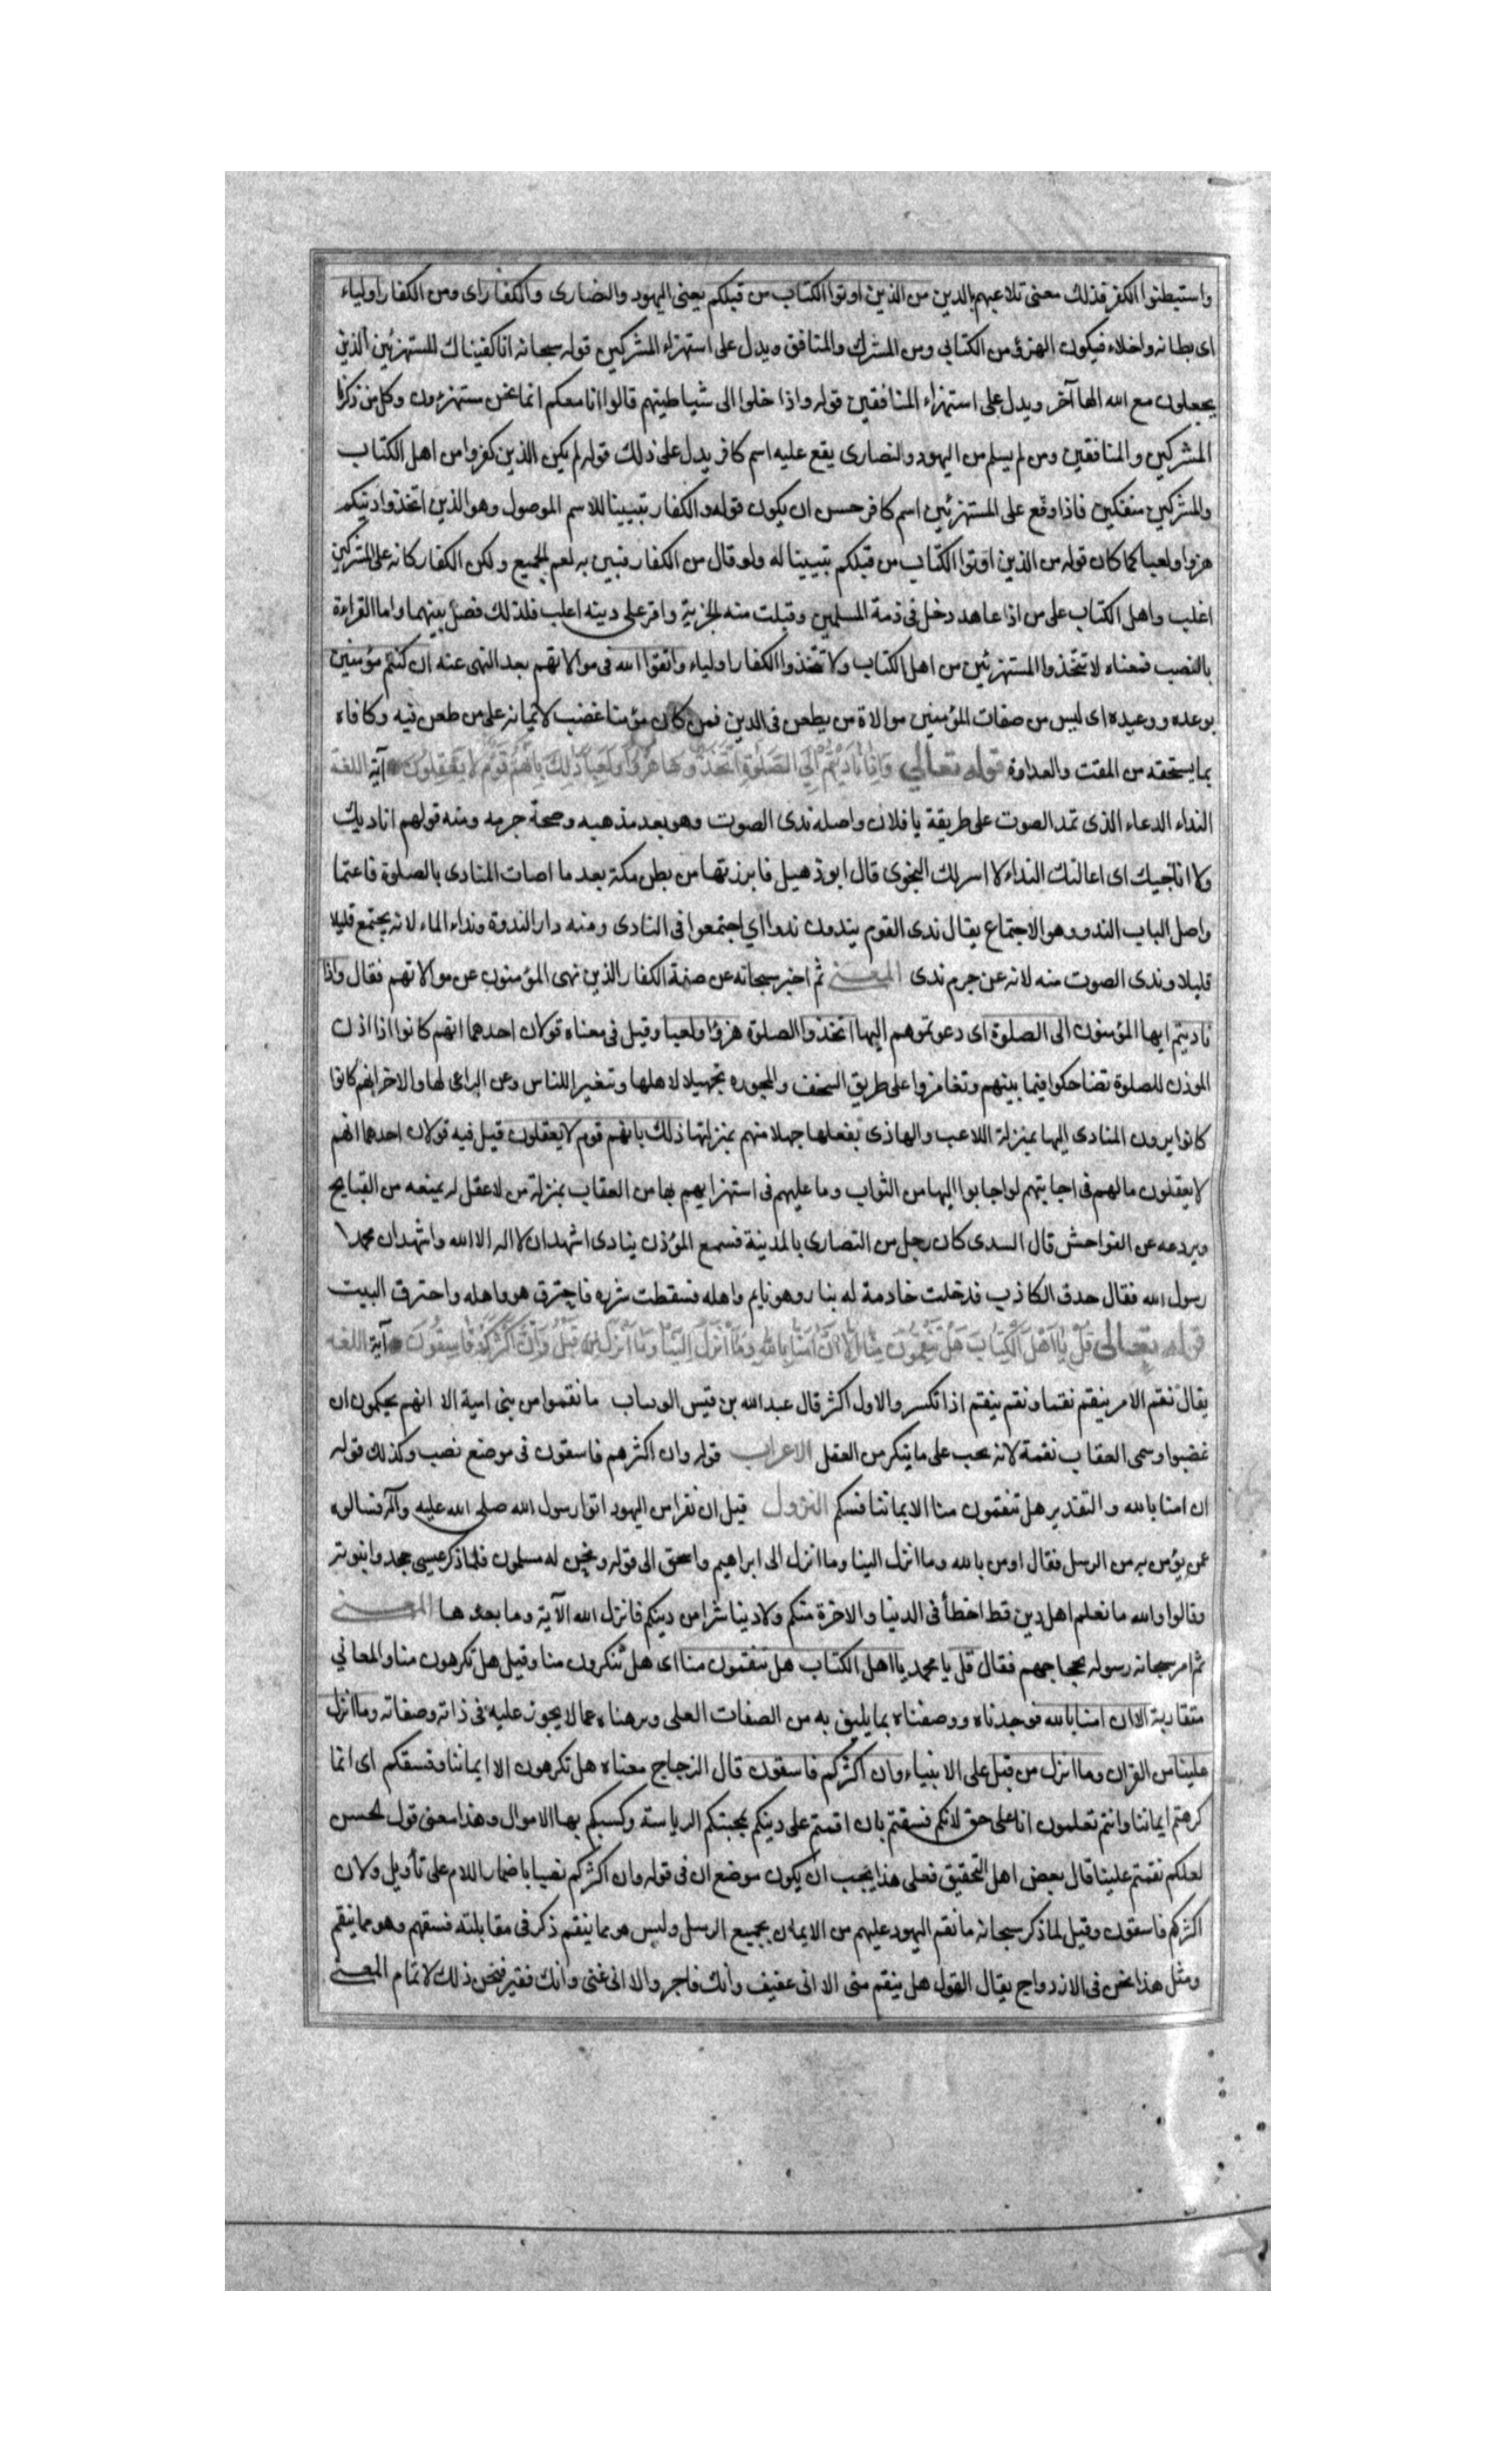 واستبطنوا الكفر فذلك معنى تلاعبهم بالدين من الذين اوتوا الكتاب من قبلكم يعنى اليهود والنصارى والكفار اى ومن الكفار اولياء
اى بطانه واخلاء فيكون الهزؤ من الكتابي ومن المشرك والمنافق ويدل على استهزاء المشركين قوله سبحانه انا كفيناك المستهزئين الذين
يجعلون مع الله الها آخر ويدل على استهزاء المنافقين قوله واذا خلوا الى شياطينهم قالوا انا معكم انما نحن مستهزءون وكل من ذكرنا
المشركين والمنافقين ومن لم يسلم من اليهود والنصارى يقع عليه اسم كافر يدل على ذلك قوله لم يكن الذين كفروا من اهل الكتاب
والمشركين منفكين فاذا وقع على المستهزئين اسم كافر حسن ان يكون قوله والكفار تبيينا للاسم الموصول وهو الذين اتخذوا دينكم
هزوا ولعبا كما كان قوله من الذين اوتوا الكتاب من قبلكم تبيينا له ولو قال من الكفار فبين به لعم الجميع ولكن الكفار كانه على المشركين
اغلب واهل الكتاب على من اذا عاهد دخل فى ذمة المسلمين وقبلت منه الجزية واقر على دينه اغلب فلذلك فصل بينهما واما القراءة
بالنصب فمعناه لا تتخذوا المستهزئين من اهل الكتاب ولا تتخذوا الكفار اولياء واتقوا الله فى موالاتهم بعد النهى عنه ان كنتم مؤمنين
بوعده ووعيده اى ليس من صفات المؤمنين موالاة من يطعن فى الدين فمن كان مؤمنا غضب لايمانه على من طعن فيه وكافاه
بما يستحقه من المقت والعداوة قوله تعالى وَاِذَا نَادَيْتُمْ اِلَى الصَّلوٰةِ اتَّخَذُوهَا هُزُوًا وَلَعِبًا ذٰلِكَ بِاَنَّهُمْ قَوْمٌ لَا يَعْقِلُونَ آية اللغة
النداء الدعاء الذى تمد الصوت على طريقة يا فلان واصله ندى الصوت وهو بعد مذهبه وصحة جرمه ومنه قولهم اناديك
ولا اناجيك اى اعالنك النداء لا اسر لك النجوى قال ابو ذهيل فابرزتها من بطن مكة بعد ما اصات المنادى بالصلوة فاعتما
واصل الباب الندو وهو الاجتماع يقال ندى القوم يندون ندوا اي اجتمعوا فى النادى ومنه دار الندوة ونداء الماء لانه يجتمع قليلا
قليلا وندى الصوت منه لانه عن جرم ندى المعنى ثم اخبر سبحانه عن صفة الكفار الذين نهى المؤمنون عن موالاتهم فقال واذا
ناديتم ايها المؤمنون الى الصلوة اى دعوتموهم اليها اتخذوا الصلوة هزؤا ولعبا وقيل فى معناه قولان احدهما انهم كانوا اذا اذن
الموذن للصلوة تضاحكوا فيما بينهم وتغامزوا على طريق السخف والمجون تجهيلا لاهلها وتنفيرا للناس وعن الداعى لها والاخر انهم كانوا
كانوا يرون المنادى اليها بمنزلة اللاعب والهاذى بفعلها جهلا منهم بمنزلتها ذلك بانهم قوم لا يعقلون قيل فيه قولان احدهما انهم
لا يعقلون ما لهم فى اجابتهم لو اجابوا اليها من الثواب وما عليهم فى استهزايهم بها من العقاب بمنزلة من لا عقل له يمنعه من القبايح
ويردعه عن الفواحش قال السدى كان رجل من النصارى بالمدينة فسمع المؤذن ينادى اشهد ان لا اله الا الله واشهد ان محمدا
رسول الله فقال حرق الكاذب فدخلت خادمة له بنار وهو نايم واهله فسقطت شرره فاحترق هو واهله واحترق البيت
قوله تعالى قُلْ يَا اَهْلَ الْكِتَابِ هَلْ تَنْقِمُونَ مِنَّا اِلَّا اَنْ اٰمَنَّا بِاللّٰهِ وَمَا اُنْزِلَ اِلَيْنَا وَمَا اُنْزِلَ مِنْ قَبْلُ وَاَنَّ اَكْثَرَكُمْ فَاسِقُونَ آية اللغة
يقال نقم الامر ينقم نقما ونقم ينقم اذا انكسر والاول اكثر قال عبد الله بن قيس الرقيات ما نقموا من بنى امية الا انهم يحلمون ان
غضبوا وسمى العقاب نقمة لانه يجب على ما ينكر من الفعل الاعراب قوله وان اكثرهم فاسقون فى موضع نصب وكذلك قوله
ان امنا بالله والتقدير هل تنقمون منا الا ايماننا وفسقكم النزول قيل ان نفرا من اليهود اتوا رسول الله صلى الله عليه وآله فسالوه
عمن يؤمن به من الرسل فقال اومن بالله وما انزل الينا وما انزل الى ابراهيم واسحق الى قوله ونحن له مسلمون فلما ذكر عيسى جحدوا بنبوته
وقالوا والله ما نعلم اهل دين قط اخطأ فى الدنيا والاخرة منكم ولا دينا شرا من دينكم فانزل الله الآية وما بعدها المعنى
ثم امر سبحانه رسوله بحجاجهم فقال قل يا محمد يا اهل الكتاب هل تنقمون منا اى هل تنكرون منا وقيل هل تكرهون منا والمعاني
متقاربة الا ان امنا بالله فوحدناه ووصفناه بما يليق به من الصفات العلى ونزهناه عما لا يجوز عليه فى ذاته وصفاته وما انزل
علينا من القران وما انزل من قبل على الانبياء وان اكثركم فاسقون قال الزجاج معناه هل تكرهون الا ايماننا وفسقكم اى انما
كرهتم ايماننا وانتم تعلمون انا على حق لانكم فسقتم بان اقمتم على دينكم بمحبتكم الرياسة وكسبكم بها الاموال وهذا معنى قول الحسن
لعلكم نقمتم علينا قال بعض اهل التحقيق فعلى هذا يجب ان يكون موضع ان فى قوله وان اكثركم نصبا باضمار اللام على تأويل ولان
اكثركم فاسقون وقيل لما ذكر سبحانه ما نقم اليهود عليهم من الايمان بجميع الرسل وليس هو مما ينقم ذكر فى مقابلته فسقهم وهو مما ينقم
ومثل هذا يحسن فى الازدواج يقال القول هل ينقم منى الا انى عفيف وأنك فاجر والا انى غنى وانك فقير فيحسن ذلك لاتمام المعنى